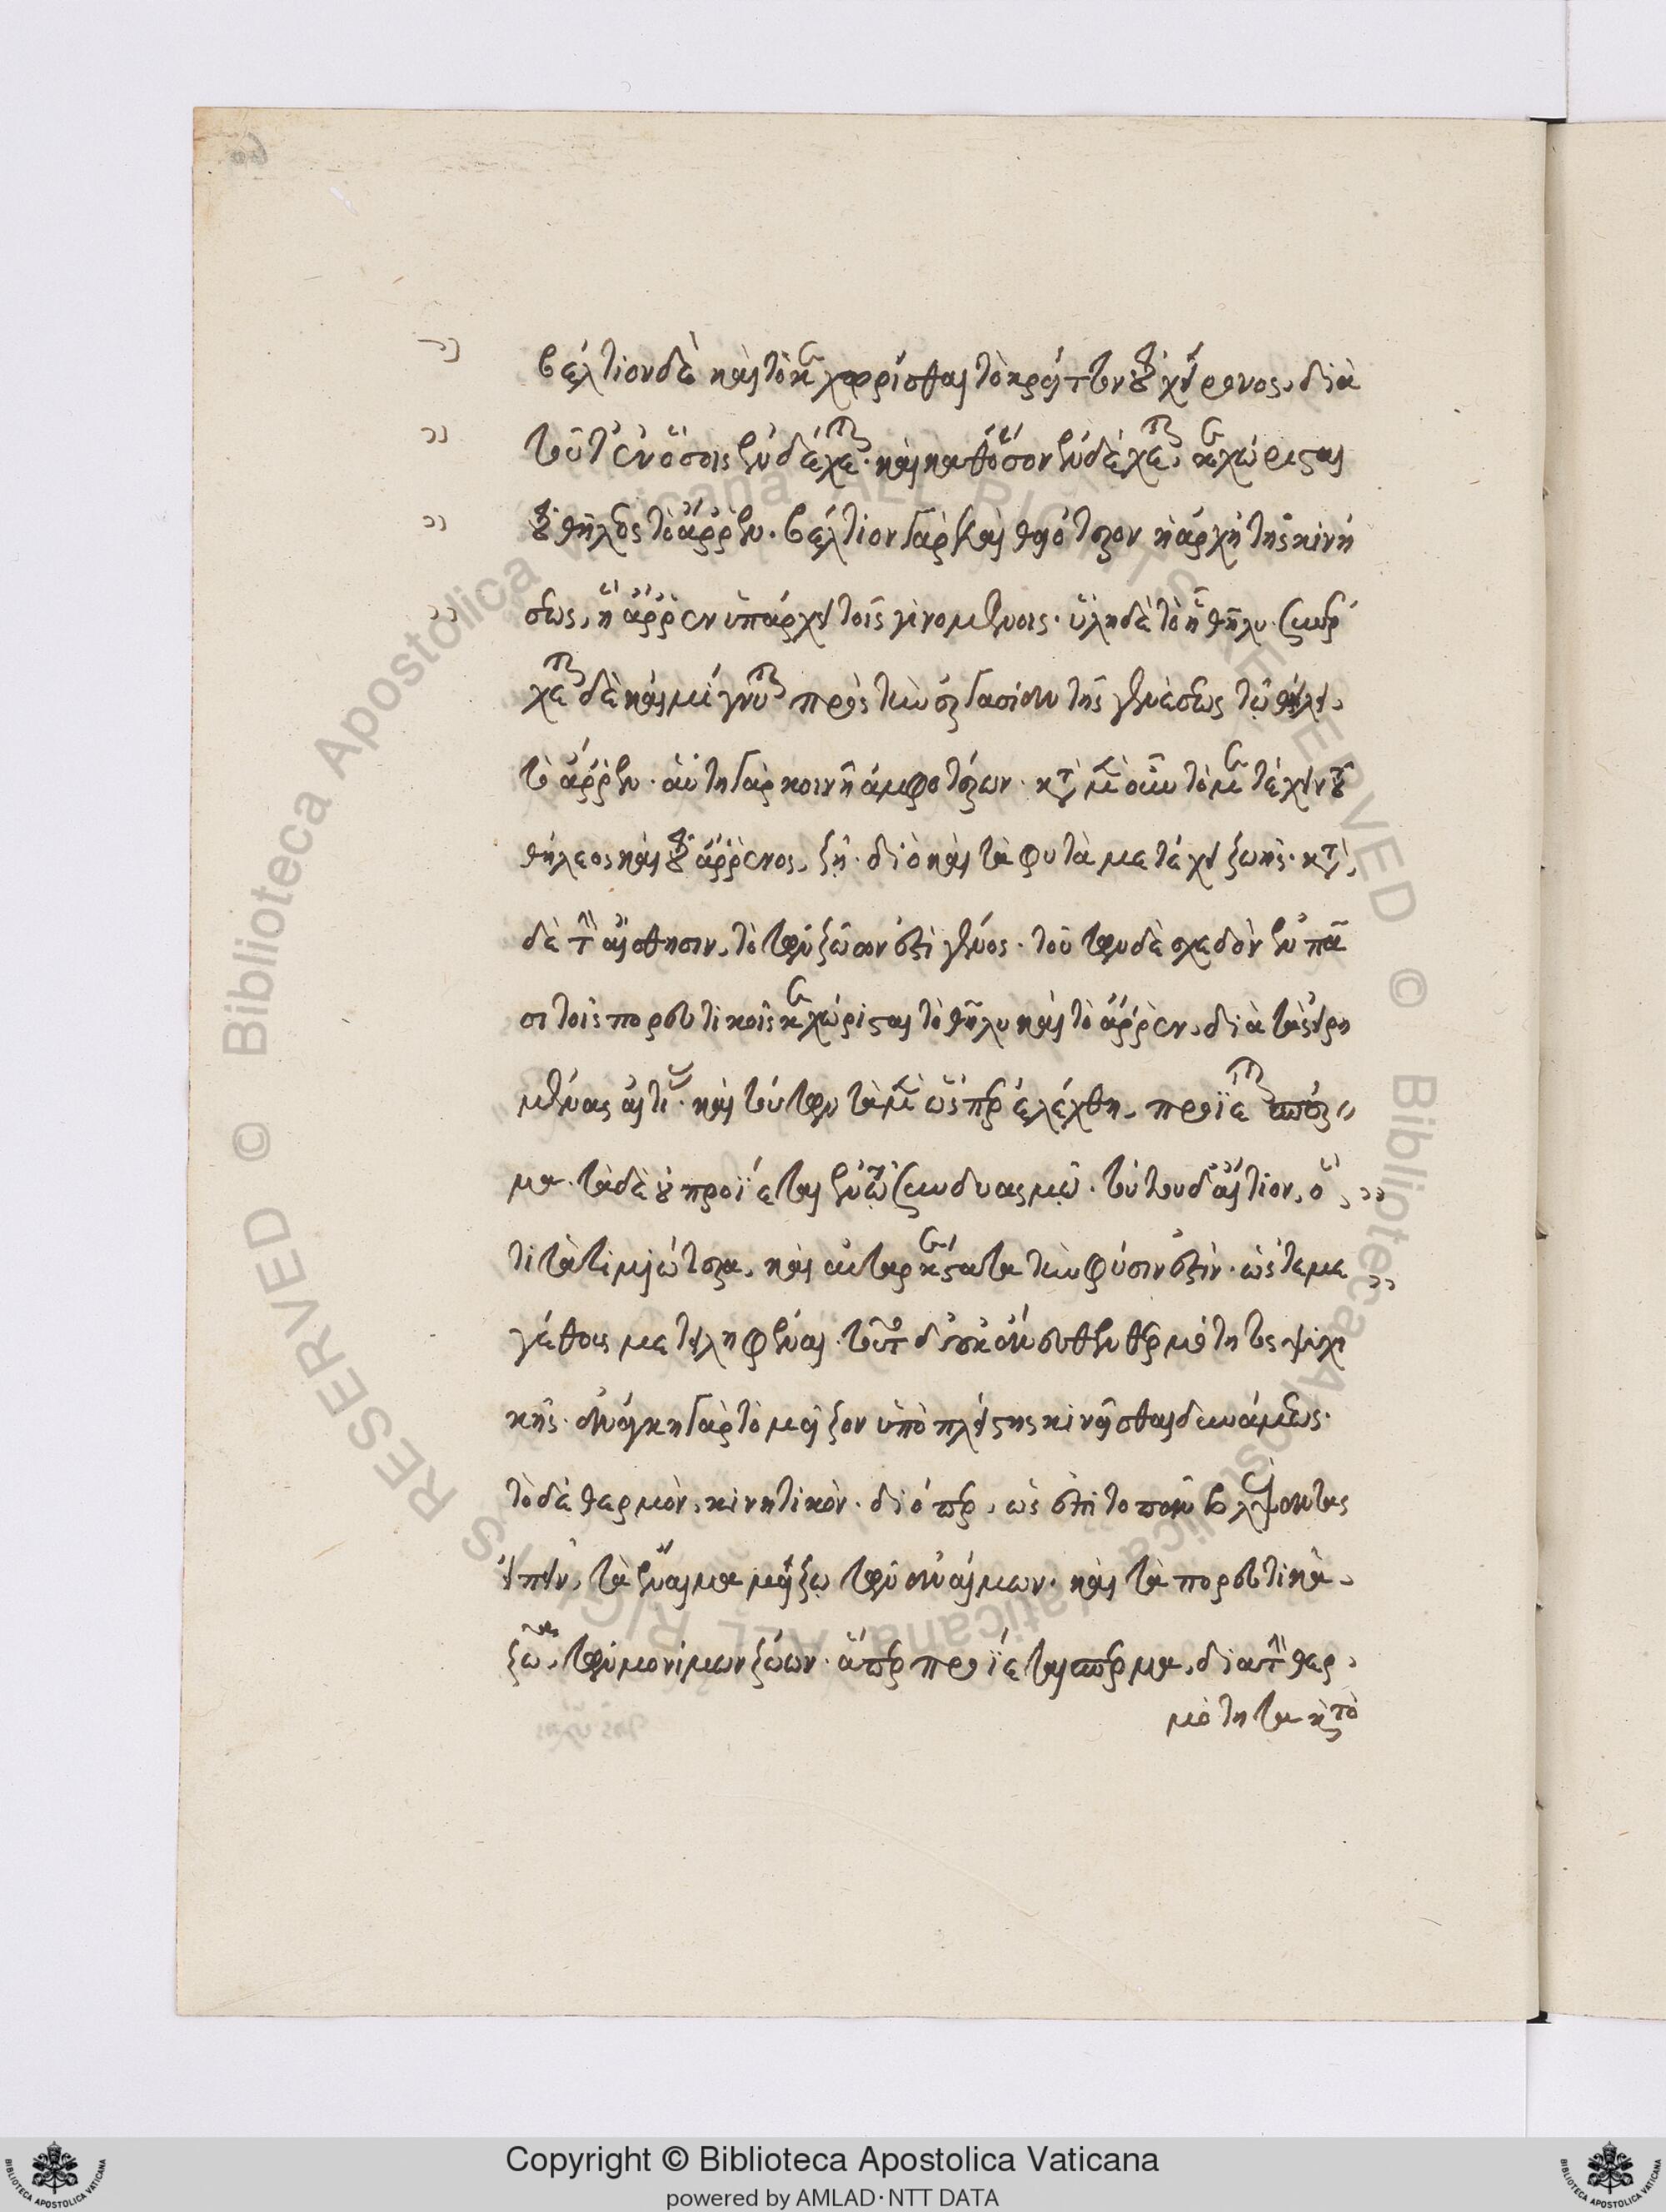 βέλτιον δὲ καὶ τὸ κεχωρίσθαι τὸ κρεῖττον τοῦ χείρονος, διὰ
τοῦτ' ἐν ὅσοις ἐνδέχεται· καὶ καθ' ὅσον ἐνδέχεται, κεχώρισται
τοῦ θήλεος τὸ ἄρρεν. βέλτιον γὰρ καὶ θειότερον ἡ ἀρχὴ τῆς κινή
σεως, ᾗ ἄρρεν ὑπάρχει τοῖς γινομένοις· ὕλη δὲ τὸ ᾗ θῆλυ. συνέρ
χεται δὲ καὶ μίγνυται πρὸς τὴν ἐργασίαν τῆς γενέσεως τῷ θήλει,
τὸ ἄρρεν· αὕτη γὰρ κοινὴ ἀμφοτέρων. κατὰ μὲν οὖν τὸ μετέχειν τοῦ
θήλεος καὶ τοῦ ἄρρενος, ζῇ· διὸ καὶ τὰ φυτὰ μετέχει ζωῆς. κατὰ
δὲ τὴν αἴσθησιν, τὸ τῶν ζῴων ἐστὶ γένος. τούτων δὲ σχεδὸν ἐν πᾶ
σι τοῖς πορευτικοῖς κεχώρισται τὸ θῆλυ καὶ τὸ ἄρρεν, διὰ τὰς εἰρη
μένας αἰτίας. καὶ τούτων τὰ μὲν ὥσπερ ἐλέχθη, προΐεται σπέρ
μα. τὰ δὲ οὐ προΐεται ἐν τῷ συνδυασμῷ. τούτου δ' αἴτιον, ὅ
τι τὰ τιμιώτερα, καὶ αὐταρκέστατα τὴν φύσιν ἐστίν· ὥστε με
γέθους μετειληφέναι. τοῦτο δ' οὐκ ἄνευ θερμότητος ψυχι
κῆς. ἀνάγκη γὰρ τὸ μεῖζον ὑπὸ πλείστης κινεῖσθαι δυνάμεως.
τὸ δὲ θερμὸν, κινητικόν. διόπερ, ὡς ἐπὶ τὸ πᾶν βλέψαντας
εἰπεῖν, τὰ ἔναιμα μείζω τῶν ἀναίμων. καὶ τὰ πορευτικὰ
ζῷα, τῶν μονίμων ζῴων. ἅπερ προΐεται σπέρμα, διὰ τὴν θερ
μότητα καὶ τὸ